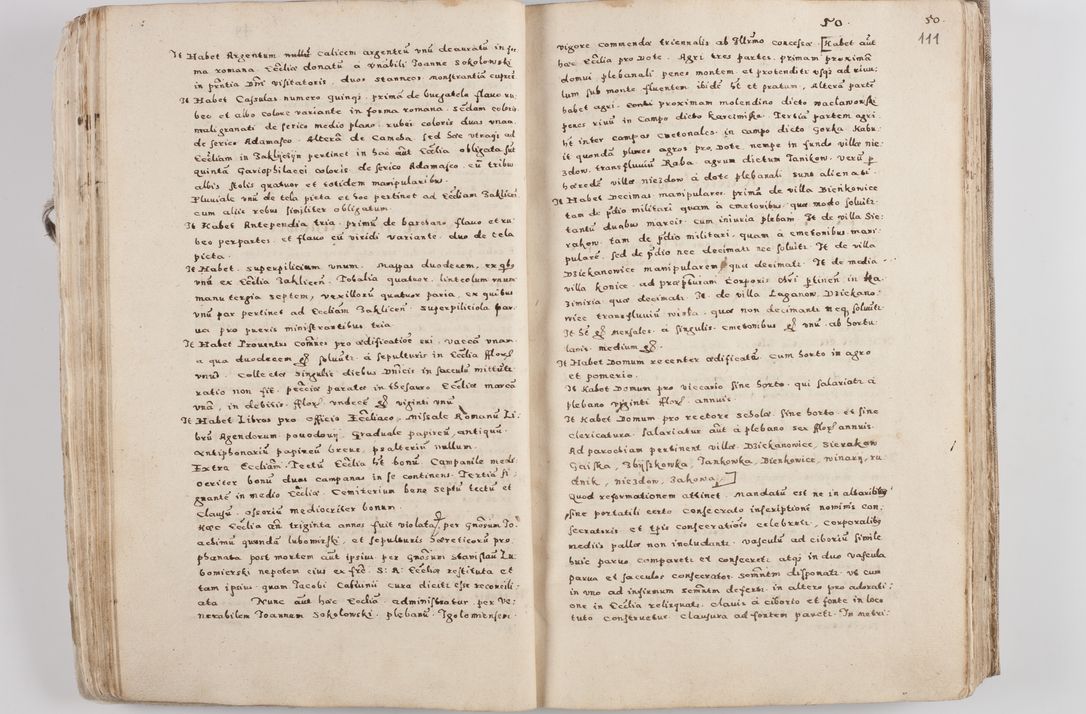 It Habet Argentum nullũ calicem argenteũ vnũ deauratũ in for
ma romana Eccliæ donatũ a vnabili Joanne Sokolowski
in pñtia Dñi visitatoris, duos stanneos monstrantia cuprea
It Habet Casulas numero quinq; prima de burgatela flauo ru
beo et albo colore variante in forma romana secdam coloris
maligranati de serico medio plano, rubei coloris duas vnam
de serico Adamasco. Alterã de Camcha sed hæc vtraq; ad
Eccliam in Zakliczÿn pertinet in hac aũt Ecclia obligata sũt
quintã Gariophilacei coloris de serico Adamasco, cũ tribus
albis stolis quatuor et totidem manipularibus
Pluuiale vnũ de tela picta et hoc pertinet ad Eccliam Zaklicen
cum aliis rebus similiter obligatum
It Habet Antependia tria primũ de barchano flauo et ru
beo per partes et flauo cũ viridi variante duo de tela
picta
It Habet superpilicium vnum. Mappas duodecem, ex qbs
vnũ ex Ecclia Zaklicen. Tobalia quatuor, linteolum vnum
manu tergia septem, vexillorũ quatuor paria, ex quibus
vnũ par pertinet ad Eccliam Zaklicen superpiliciola par
ua pro pueris ministrantibus tria
It Habet Prouentus cõmes pro ædificatiõe sui, vaccã vnam
a qua duodecem gr soluũt: à sepulturis in Ecclia flor
vnũ. Collecta singulis diebus Dnicis in sacculũ mittitr
ratio non fit peccia parata in thesauro Eccliæ marcã
vnã, in debitis flor vndecẽ gr viginti vnũ
It Habet Libros pro officio Eccliaco. Missale Romanũ Li
brũ Agendorum pouodorij Graduale papireũ, antiquũ
Antiphonariũ papireũ breue, psalteriũ nullum
Extra Eccliam. Tectũ Ecclia ht bonũ Campanile medi
ocriter bonũ duas campanas in se continens Tertiã si
gnantẽ in medio Eccliæ. Cemiterium bene septũ tectũ et
Clausũ. Ossoriũ mediocriter bonum
Hæc Ecclia añ triginta annos fuit violata per gnosum Jo
achimũ quondã lubomirski, et sepulturis hæreticorũ pro
phanata post mortem aũt ipsius per gnosum Stanislaũ Lu
bomierski nepotem eius ex frẽ S: R: Ecclæ restituta et
tam ipsius quam Jacobi Cabuinũ cura dicitr esse reconcili
ata Nunc aũt hæc Ecclia administratur per Ve:
nerabilem Joannem Sokolowski, plebanũ Igolomiensem
50.
50.
111
vigore commendæ triennalis ab Illrmo concessæ. Habet aũt
hæc Ecclia pro Dote. Agri tres partes. primam proximã
domui plebanali penes montem, et protenditr vsq; ad riuu:
lum sub monte fluentem ibidẽ ht et pratum, Alterã partẽ
habet agri proximam molendino dicto waclawowski
penes riuũ in Campo dicto karczmiska. Tertiã partem agri
ht inter campos Cmetonales in campo dicto Gorka Habu:
it quondã plures agros pro Dote, nempe in fundo villæ nie:
zdow, transfluuiũ Raba agrum dictum Tanikow. verũ p
hæredẽ villæ niezdow à dote plebanali sunt alienati.
It Habet Decimas manipulares, primã de villa Bienkowice
tam de pdio militari quam à cmetonibus quæ modo soluitr
tantũ duabus marcis cum iniuria plebani It de villa Sie:
rakow, tam de pdio militari, quam à cmetonibus mani:
pularẽ. sed de pdio nec decimatr nec soluitr. It de villa
Dziekanowice manipularem quæ decimatr It de media
villa konice ad præpturam Corporis Chri ptinen in Ka
zimiria quæ decimatr. It de villa Laganow, Dziekano:
wice transfluuiũ wista quæ non decimantr neq; soluũtr
It ht gr mensales à singulis cmetonibus gr vnũ ab hortu
lanis medium gr
It Habet Domum recenter ædificatã cum horto in agro
et pomerio
It Habet Domum pro viccario sine horto. qui salariatr à
plebano viginti flor annuis
It Habet Domum pro rectore scholæ sine horto et sine
clericatura. Salariatur aũt à plebano sex flor annuis
Ad parochiam pertinent villæ Dziekanowice, Sierakow
Gaiska, Zbÿszkowka, Jankowka, Bienkowice, winarÿ, ru
dnik, niezdow, Zakowa
Quod reformationem attinet. Mandatũ est ne in altaribus
sine portatili certo consecrato inscriptione nominis con:
secratoris et tpis consecrationis celebretr, corporalibus
mediis pallæ non includantr vasculũ ad ciboriũ simile
huic paruo comparetr et consecretr atq; in duo vascula
parua et sacculos consecratos semitm disponatr. vt cum
in vno ad infirmum semitm defertr, in altero pro adorati
one in Ecclia relinquatr. Clauis à ciborio et fonte in loco
tuto conseruetur. Clausura ad fontem paretr. In metri: